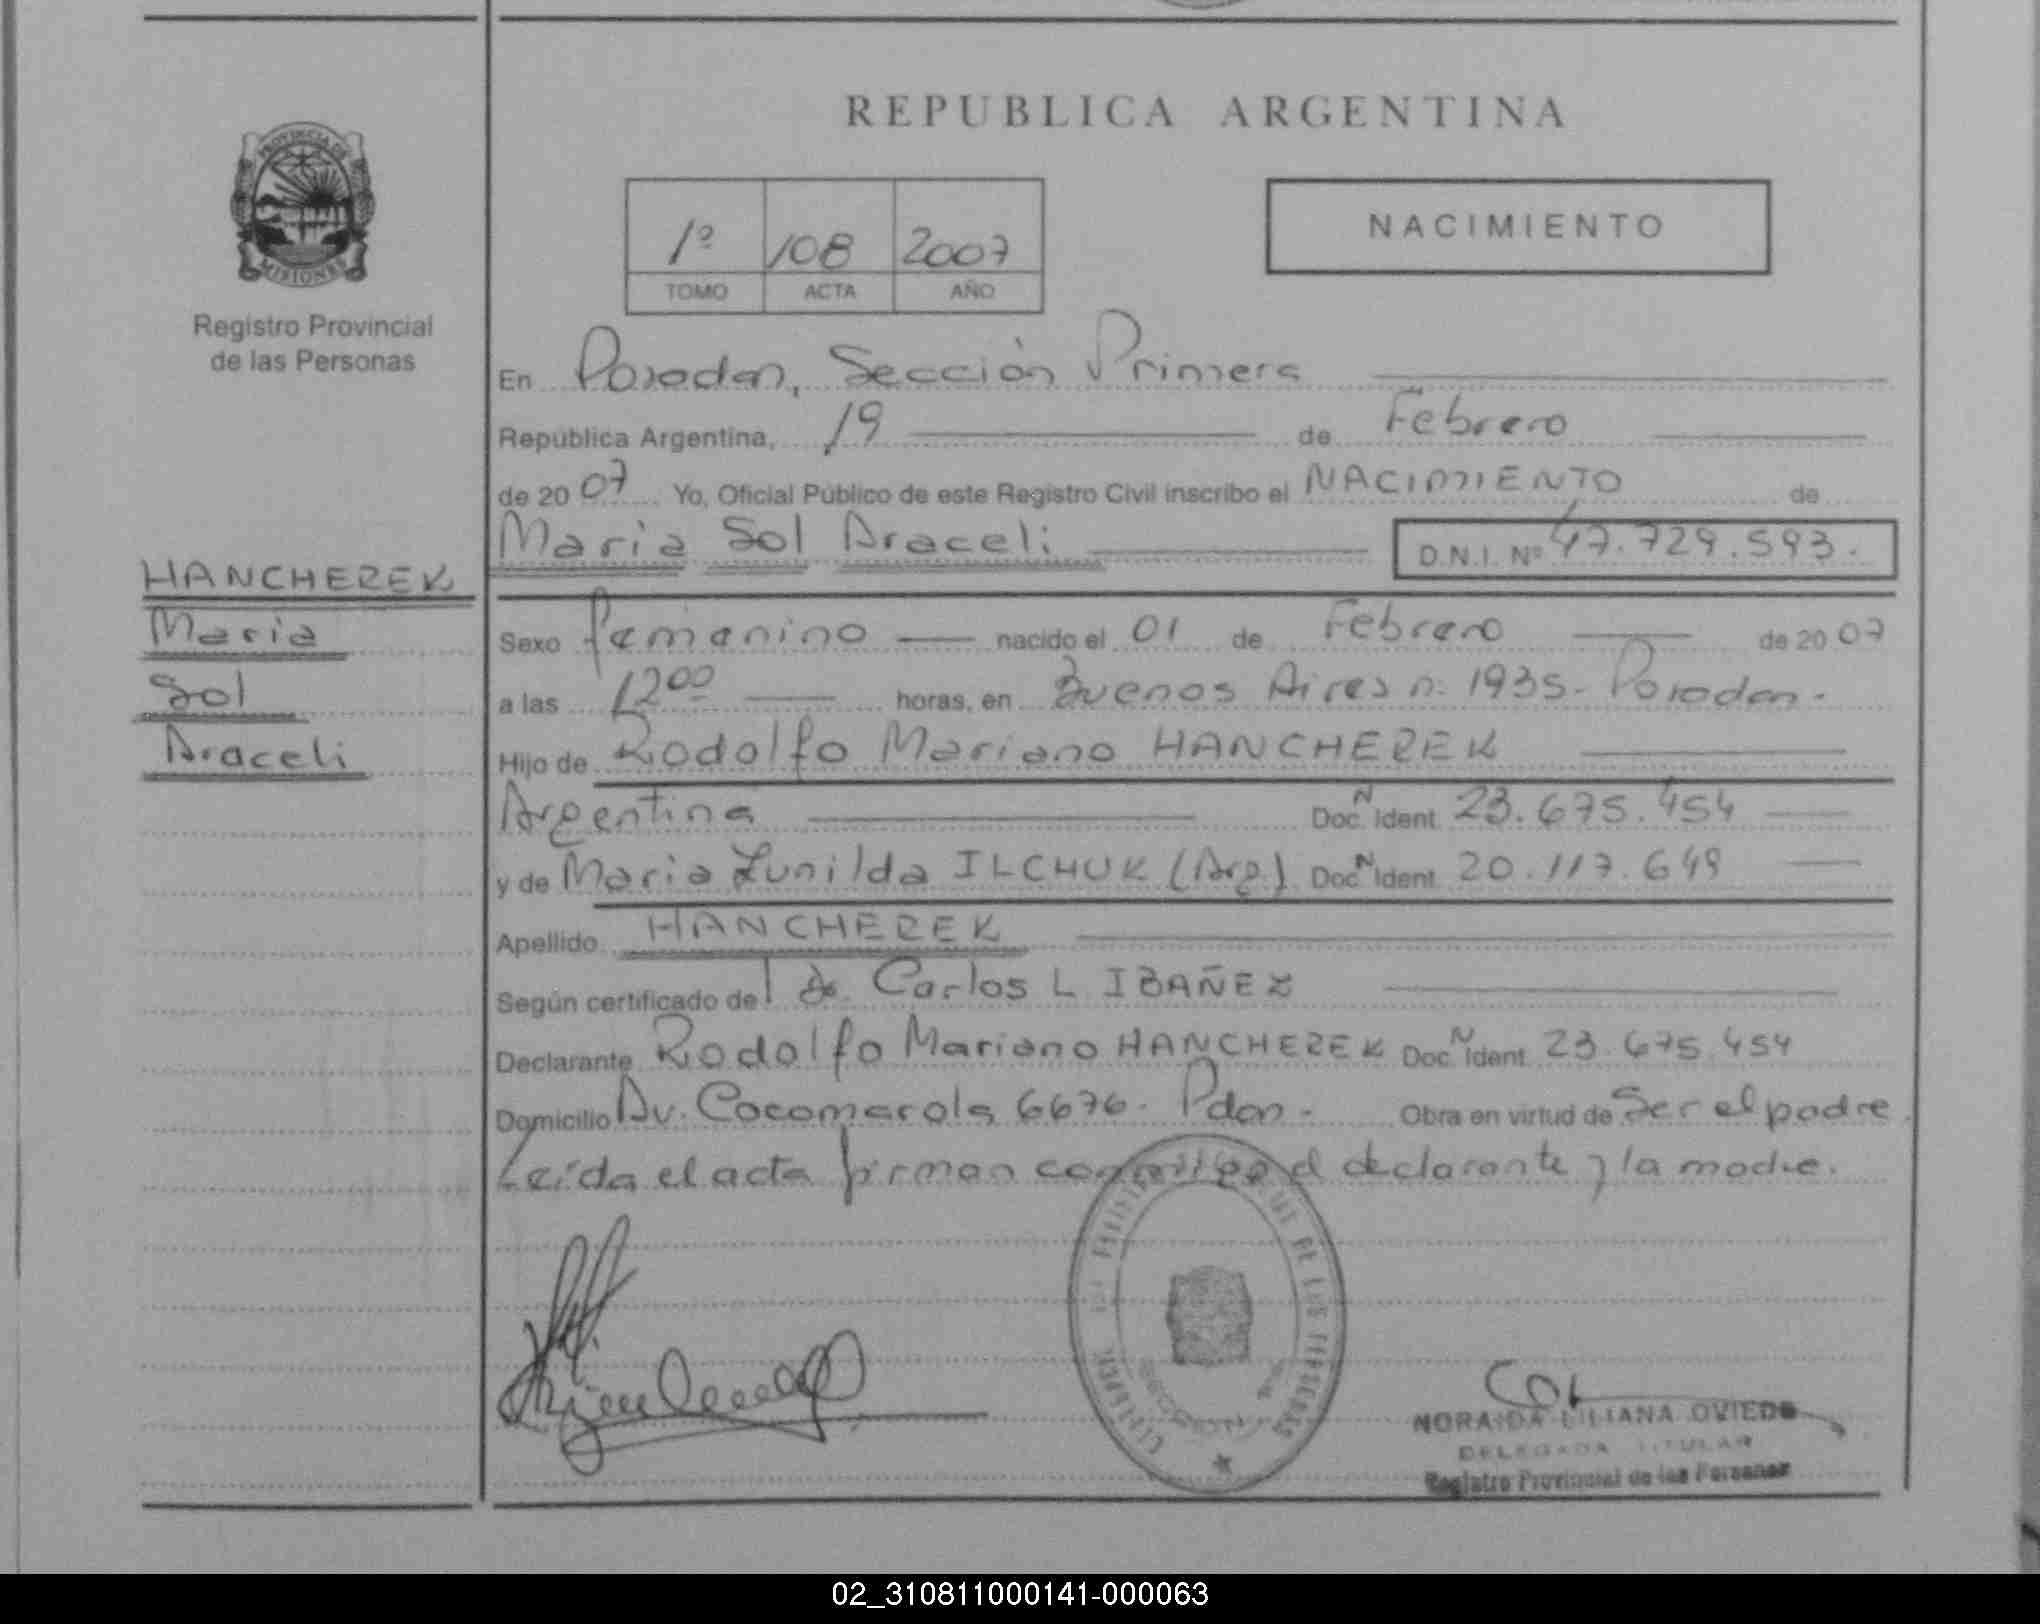 REPUBLICA ARGENTINA
PROVINCIA DE
MISIONES
Registro Provincial
de las Personas
1º 108 2007
TOMO ACTA AÑO
NACIMIENTO
En Posadas, Sección Primera
República Argentina, 19 de Febrero
de 20 07 Yo, Oficial Público de este Registro Civil inscribo el NACIMIENTO de
Maria Sol Araceli D.N.I. Nº 47.729.593.
HANCHEREK
Maria
Sol
Araceli
Sexo femenino nacido el 01 de Febrero de 20 07
a las 12 00 horas, en Buenos Aires n: 1935. Posadas.
Hijo de Rodolfo Mariano HANCHEREK
Argentina Doc. N Ident. 23.675.454
y de Maria Lunilda ILCHUK (Arg.) Doc. N Ident. 20.117.649
Apellido HANCHEREK
Según certificado del Dr. Carlos L IBAÑEZ
Declarante Rodolfo Mariano HANCHEREK Doc. N Ident. 23.675.454
Domicilio Av. Cocomarola 6676. Pdas. Obra en virtud de Ser el padre.
Leída el acta firman conmigo el declarante y la madre.
DE LAS PERSONAS
SECCION
NORAIDA LILIANA OVIEDO
DELEGADA TITULAR
Registro Provincial de las Personas
02_310811000141-000063